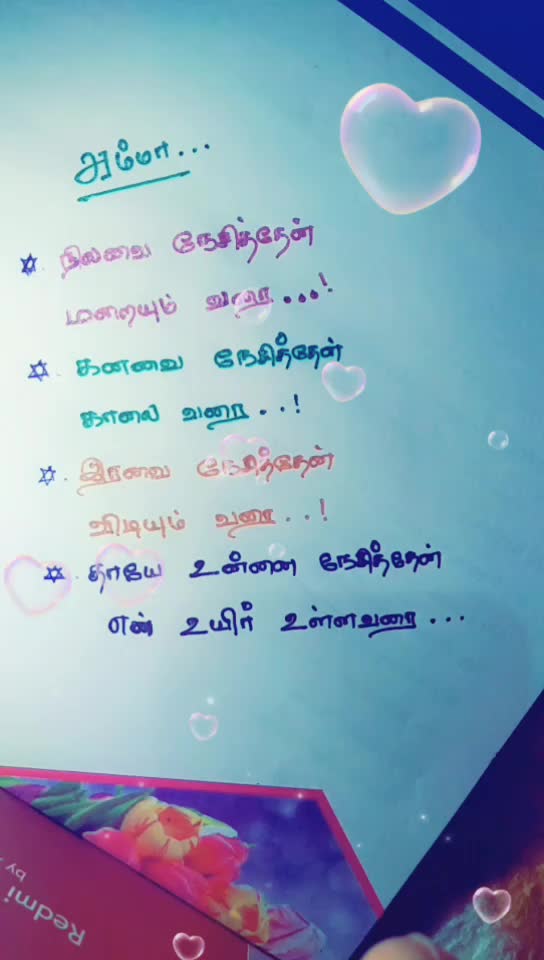 அம்மா...
நிலவை நேசித்தேன்
மறையும் வரை...!
கனவை நேசித்தேன்
காலை வரை..!
இரவை நேசித்தேன்
விடியும் வரை..!
தாயே உன்னை நேசித்தேன்
என் உயிர் உள்ளவரை...
Redmi
by